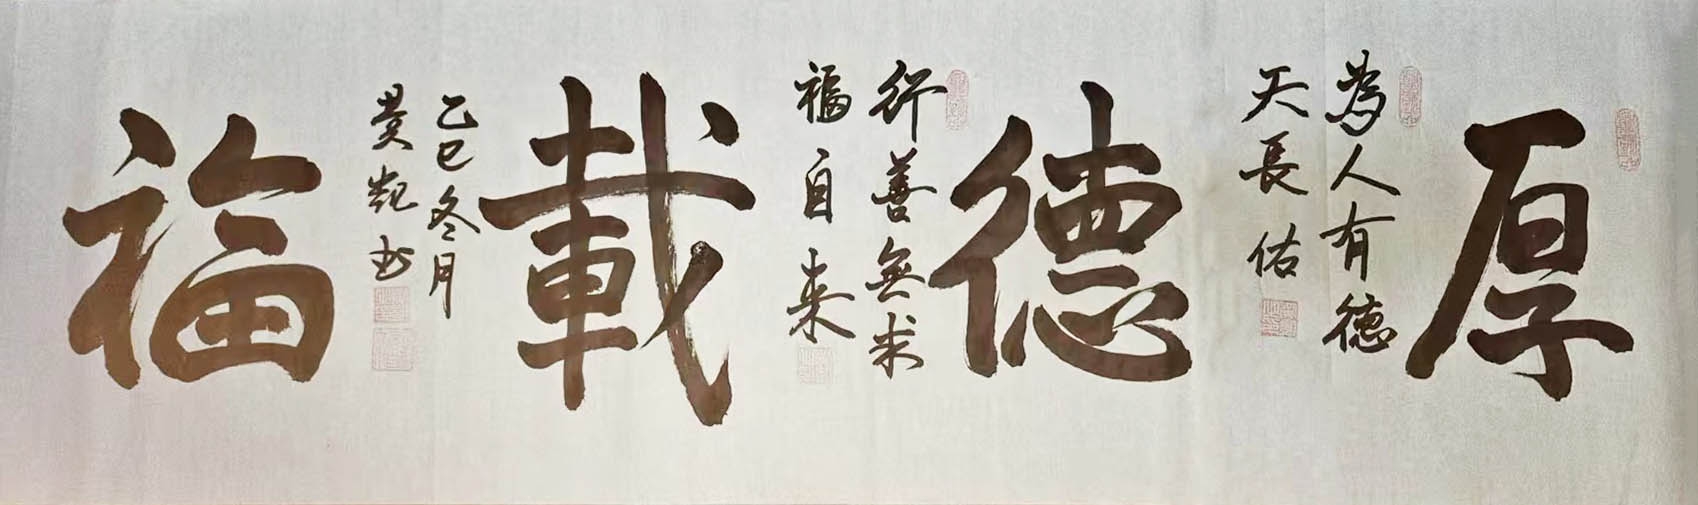 厚
為人有德
天長佑
德
行善無求
福自来
載
乙巳冬月
福